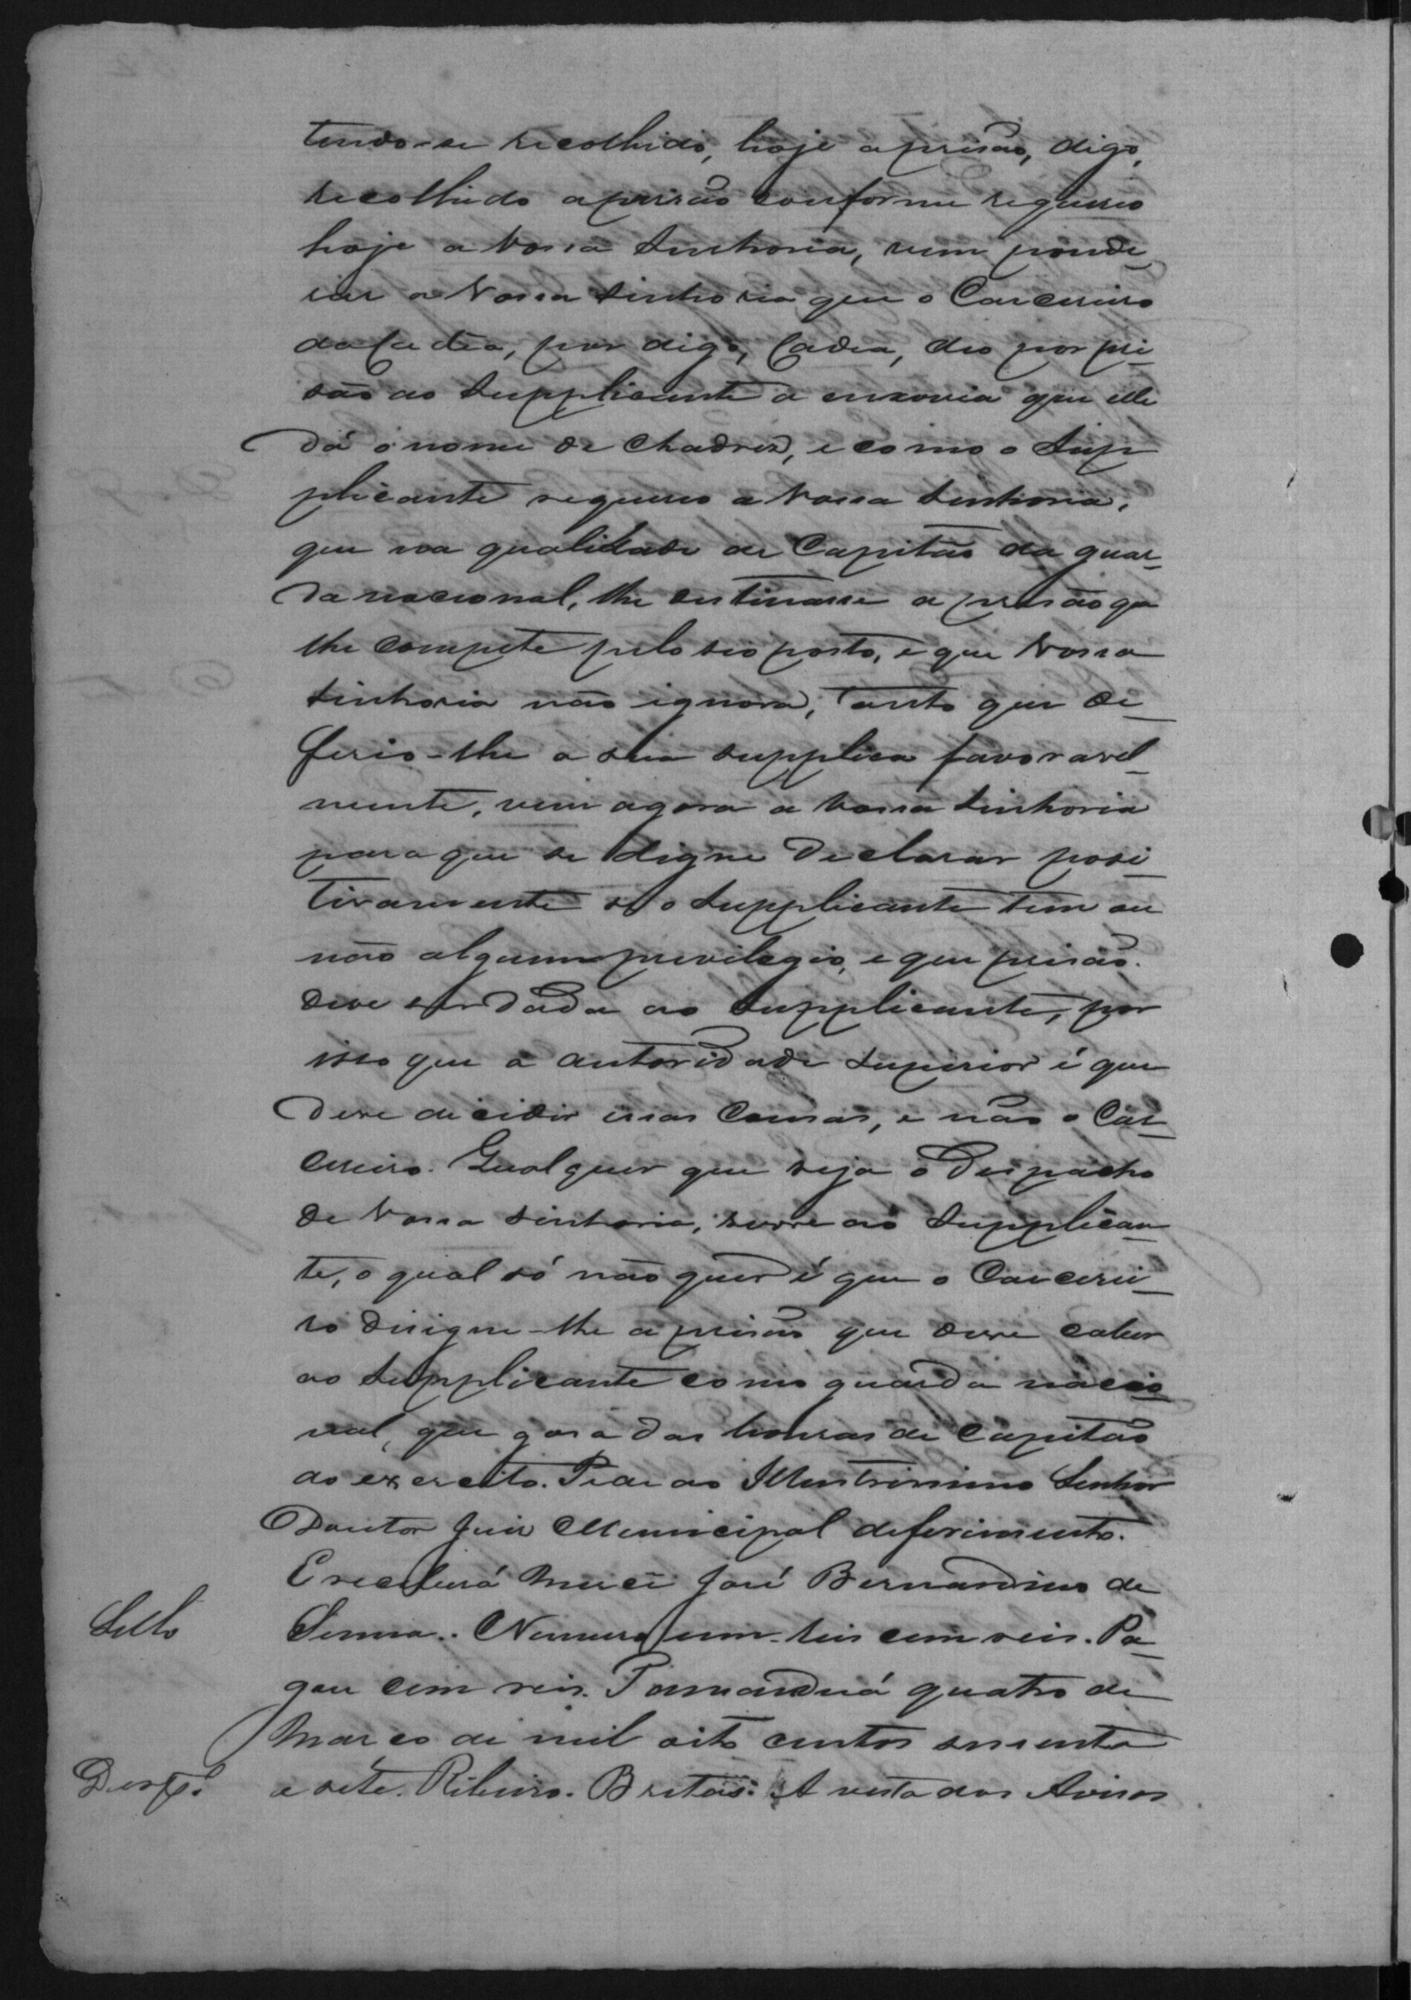 tendo-se recolhido, hoje a prisão, digo,
recolhido a prisão conforme requereo
hoje a Vossa Senhoria, vem ponde-
rar a Vossa Senhoria que o Carcereiro
da Cadea, por digo, Cadea, deo por pri-
são ao Supplicante a enxovia que elle
dá o nome de Chadrez, e como o Sup
plicante requereo a Vossa Senhoria,
que na qualidade de Capitão da guar-
da nacional, lhe destinasse a prisão qe
lhe compete pelo seo posto, e que Vossa
Senhoria não ignora, tanto que de-
ferio-lhe a sua supplica favoravel-
mente, vem agora a Vossa Senhoria
para que se digne declarar posi-
tivamente se o Supplicante tem ou
não algum previlegio, e que prisão
deve ser dada ao Supplicante, por
isso que a autoridade superior é que
deve decidir essas cousas, e não o Car-
cereiro. Qualquer que seja o Despacho
de Vossa Senhoria, serve ao Supplican-
te, o qual só não quer é que o Carcerei-
ro disigne-lhe a prisão que deve caber
ao Supplicante como guarda nacio-
nal, que gosa das honras de Capitão
do exercito. Pede ao Illustrissimo Senhor
Doutor Juiz Municipal deferimento.
E receberá Mercê José Bernardino de
Sello Senna. Numero um. Reis cem reis. Pa-
gou cem reis. Tamanduá quatro de
Março de mil oito centos sessenta
Despº. e sete. Ribeiro. Bretas. A vista dos Avisos